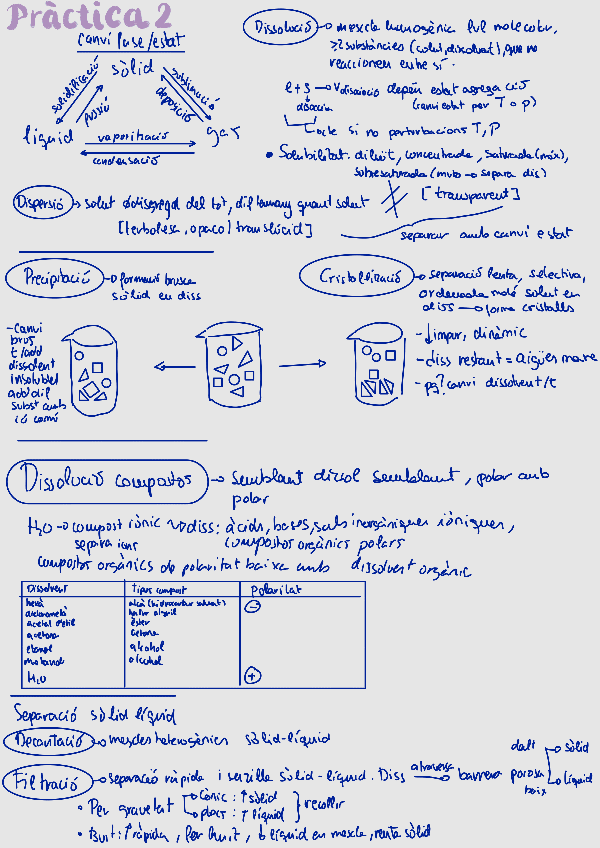 Pràctica 2
Canvi fase/estat
sòlid
solidificació
fussió
sublimació
deposició
líquid
gas
vaporització
condensació
Dissolució → mescla homogènia lvl molecular,
≥2 substàncies (solut, dissolvent), que no
reaccionen entre sí.
l + s → dissociació depèn estat agregació
(canvi estat per T o p)
dissocia
estable si no pertorbacions T, P
• Solubilitat: diluït, concentrada, saturada (màx),
sobresaturada (molt → separa dis)
[transparent]
Dispersió → solut disgregat del tot, dif tamany quant solvent
[terbolesa, opaco/translúcid]
separar amb canvi estat
Precipitació → formació brusca
sòlid en diss
Cristal·lització → separació lenta, selectiva,
ordenada del solut en
diss → forma cristalls
-canvi
brusc
t/add
dissolent
insoluble
add dif
subst amb
ió comú
- ↓impur, dinàmic
- diss restant = aigües mare
- pq? canvi dissolvent/t
Dissolució compostos → Semblant dissol semblant, polar amb
polar
H₂O → compost iònic → diss: àcids, bases, sals inorgàniques iòniques,
separa ions
compostos orgànics polars
compostos orgànics de polaritat baixa amb dissolvent orgànic
Dissolvent Tipus compost Polaritat
hexà alcà (hidrocarbur saturat) -
diclorometà halur alquil
acetat d'etil èster
acetona cetona
etanol alcohol
metanol alcohol
H₂O +
Separació sòlid líquid
Decantació → mescles heterogènies sòlid-líquid
Filtració → separació ràpida i senzilla sòlid-líquid. Diss travessa barrera porosa
dalt
sòlid
baix
líquid
• Per gravetat
cònic: ↑sòlid
plecs: ↑líquid
recollir
• Buit: ↑ràpida, per buit, ↓líquid en mescla, renta sòlid